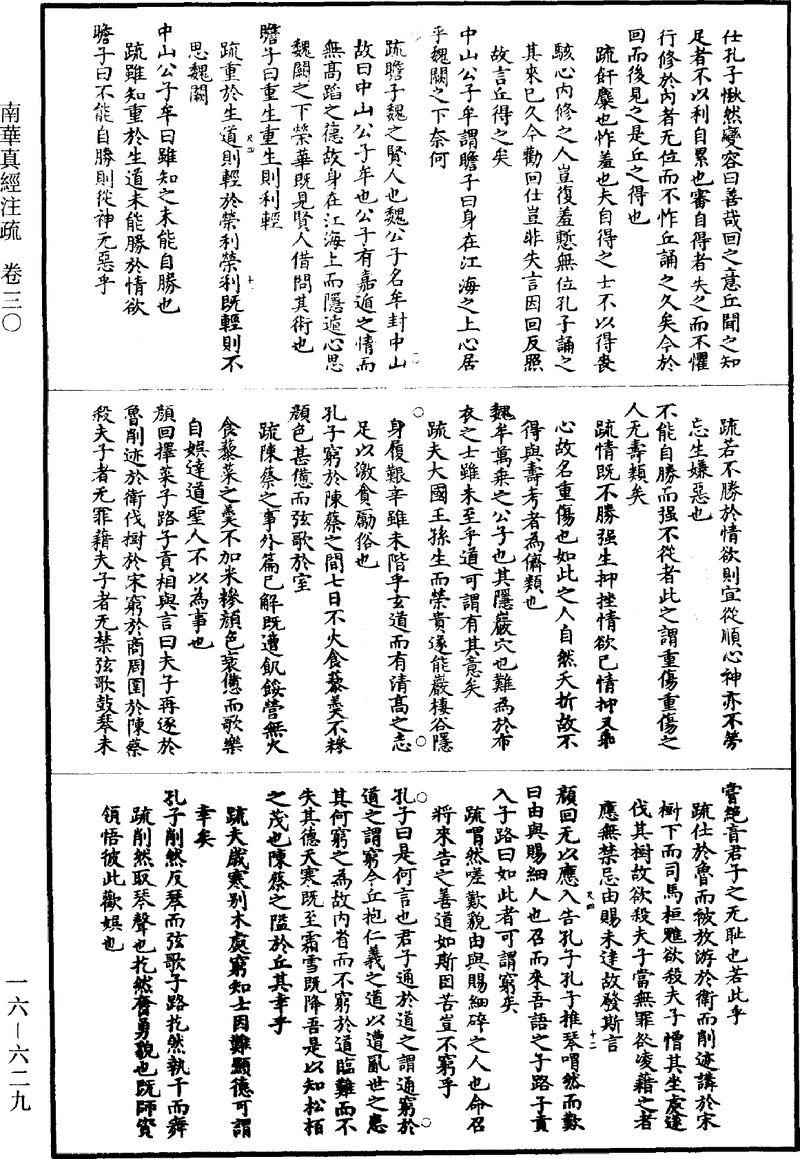 仕孔子愀然變容曰善哉回之意丘聞之知
足者不以利自累也審自得者失之而不懼
行修於內者无位而不怍丘誦之久矣今於
回而後見之是丘之得也
疏飦糜也怍羞也夫自得之士不以得喪
駭心內修之人豈復羞慙無位孔子誦之
其來已久今勸回仕豈非失言因回反照
故言丘得之矣
中山公子牟謂瞻子曰身在江海之上心居
乎魏闕之下奈何
疏瞻子魏之賢人也魏公子名牟封中山
故曰中山公子牟也公子有嘉遁之情而
無高蹈之德故身在江海上而隱遁心思
魏闕之下榮華既見賢人借問其術也
瞻子曰重生重生則利輕
疏重於生道則輕於榮利榮利既輕則不
思魏闕
中山公子牟曰雖知之未能自勝也
疏雖知重於生道未能勝於情欲
瞻子曰不能自勝則從神无惡乎
疏若不勝於情欲則宜從順心神亦不勞
忘生嫌惡也
不能自勝而强不從者此之謂重傷重傷之
人无壽類矣
疏情既不勝强生抑挫情欲已情抑又乖
心故名重傷也如此之人自然夭折故不
得與壽考者為儕類也
魏牟萬乘之公子也其隱巖穴也難為於布
衣之士雖未至乎道可謂有其意矣
疏夫大國王孫生而榮貴遂能巖棲谷隱
身履艱辛雖未階乎玄道而有清高之志
足以激貪勵俗也
孔子窮於陳蔡之間七日不火食藜羹不糝
顏色甚憊而弦歌於室
疏陳蔡之事外篇已解既遭飢餒營無火
食藜菜之羹不加米糝顏色衰憊而歌樂
自娛達道聖人不以為事也
顏回擇菜子路子貢相與言曰夫子再逐於
魯削迹於衛伐樹於宋窮於商周圍於陳蔡
殺夫子者无罪藉夫子者无禁弦歌鼓琴未
嘗絕音君子之无恥也若此乎
疏仕於魯而被放游於衛而削迹講於宋
樹下而司馬桓魋欲殺夫子憎其坐處遂
伐其樹故欲殺夫子當無罪咎凌藉之者
應無禁忌由賜未達故發斯言
顏回无以應入告孔子孔子推琴喟然而歎
曰由與賜細人也召而來吾語之子路子貢
入子路曰如此者可謂窮矣
疏喟然嗟歎貌由與賜細碎之人也命召
將來告之善道如斯困苦豈不窮乎
孔子曰是何言也君子通於道之謂通窮於
道之謂窮今丘抱仁義之道以遭亂世之患
其何窮之為故內省而不窮於道臨難而不
失其德天寒既至霜雪既降吾是以知松栢
之茂也陳蔡之隘於丘其幸乎
疏夫歲寒別木處窮知士因難顯德可謂
幸矣
孔子削然反琴而弦歌子路扢然執干而舞
疏削然取琴聲也扢然奮勇貌也既師資
領悟彼此歡娛也
南華真經注疏　卷三〇
一六—六二九